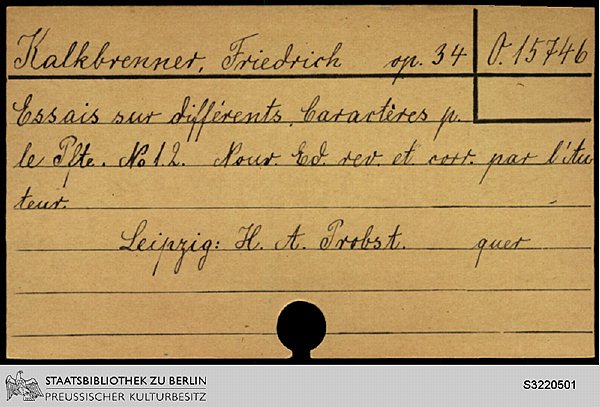 Kalkbrenner, Friedrich op. 34 O. 15746
Essais sur différents Caractères p.
le Pfte. No 1.2. Nouv. Ed. rev. et corr. par l'Au-
teur.
Leipzig: H. A. Probst. quer
STAATSBIBLIOTHEK ZU BERLIN
PREUSSISCHER KULTURBESITZ
S3220501